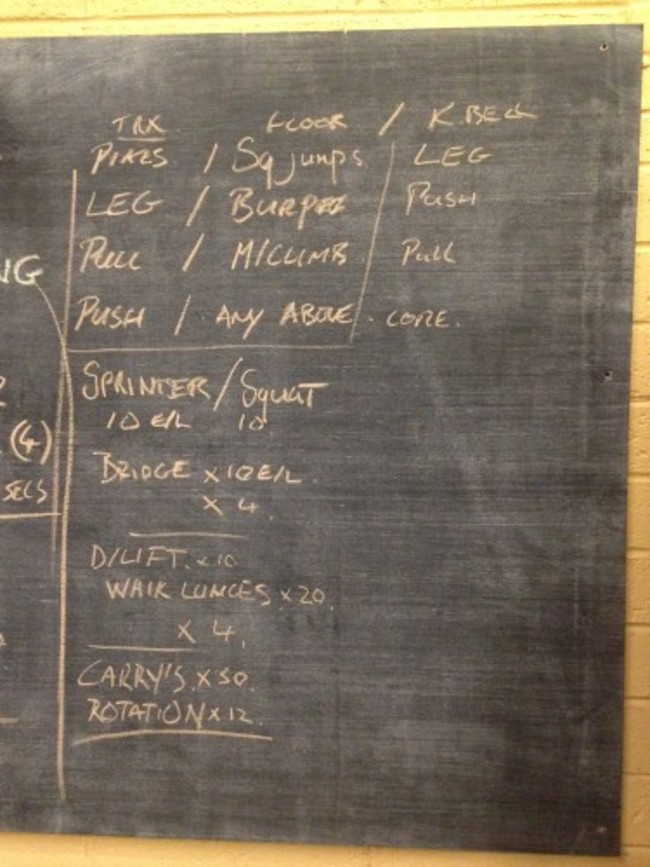 TRX FLOOR / K.BELL
/ Sq jumps / LEG
LEG / BURPEE / PUSH
PULL / M/CLIMB / PULL
PUSH / ANY ABOVE. CORE.
SPRINTER / SQUAT
10 E/L 10
BRIDGE x 10 E/L
x 4
D/LIFT. x 10
WALK LUNGES x 20
x 4.
CARRY'S. x 50.
ROTATION x 12.
NG
(4)
SECS